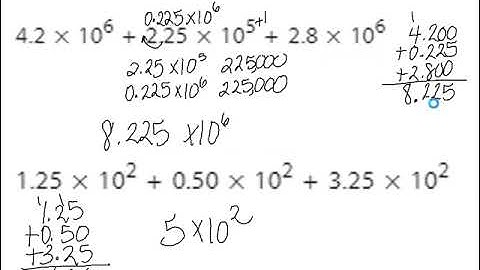 0.225 x 10⁶
4.2 × 10⁶ + 2.25 × 10⁵⁺¹ + 2.8 × 10⁶
2.25 x 10⁵ 225,000
0.225 x 10⁶ 225,000
1
4.200
+0.225
+2.800
8.225
8.225 x 10⁶
1.25 × 10² + 0.50 × 10² + 3.25 × 10²
1 1
1.25
+0.50
+3.25
5 x 10²